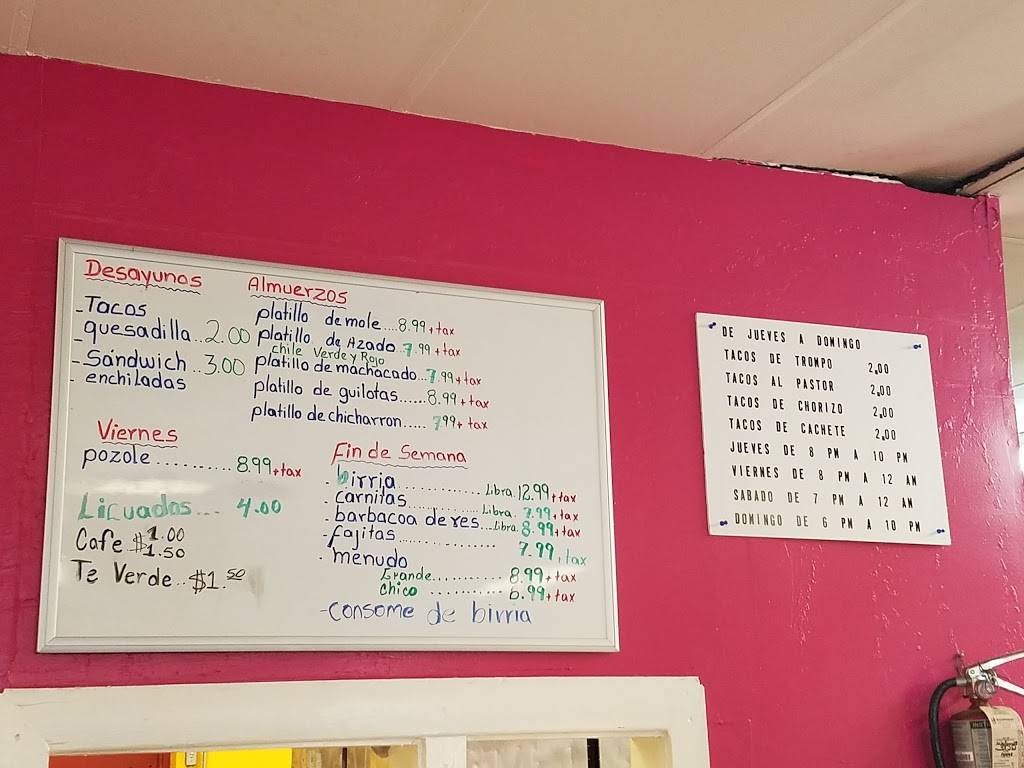 Desayunos
- Tacos
- quesadilla..2.00
- Sandwich..3.00
- enchiladas
Almuerzos
platillo de mole....8.99+tax
platillo de Azado..7.99+tax
chile Verde y Rojo
platillo de machacado...7.99+tax
platillo de guilotas......8.99+tax
platillo de chicharron.....7.99+tax
Viernes
pozole...........8.99+tax
Licuados... 4.00
Cafe $1.00
$1.50
Te Verde..$1.50
Fin de Semana
- birria............Libra.12.99+tax
- carnitas............Libra.7.99+tax
- barbacoa de res...Libra.8.99+tax
- fajitas............... 7.99+tax
- menudo
Grande...........8.99+tax
chico ...........6.99+tax
- consome de birria
DE JUEVES A DOMINGO
TACOS DE TROMPO 2,00
TACOS AL PASTOR 2,00
TACOS DE CHORIZO 2,00
TACOS DE CACHETE 2,00
JUEVES DE 8 PM A 10 PM
VIERNES DE 8 PM A 12 AM
SABADO DE 7 PM A 12 AM
DOMINGO DE 6 PM A 10 PM